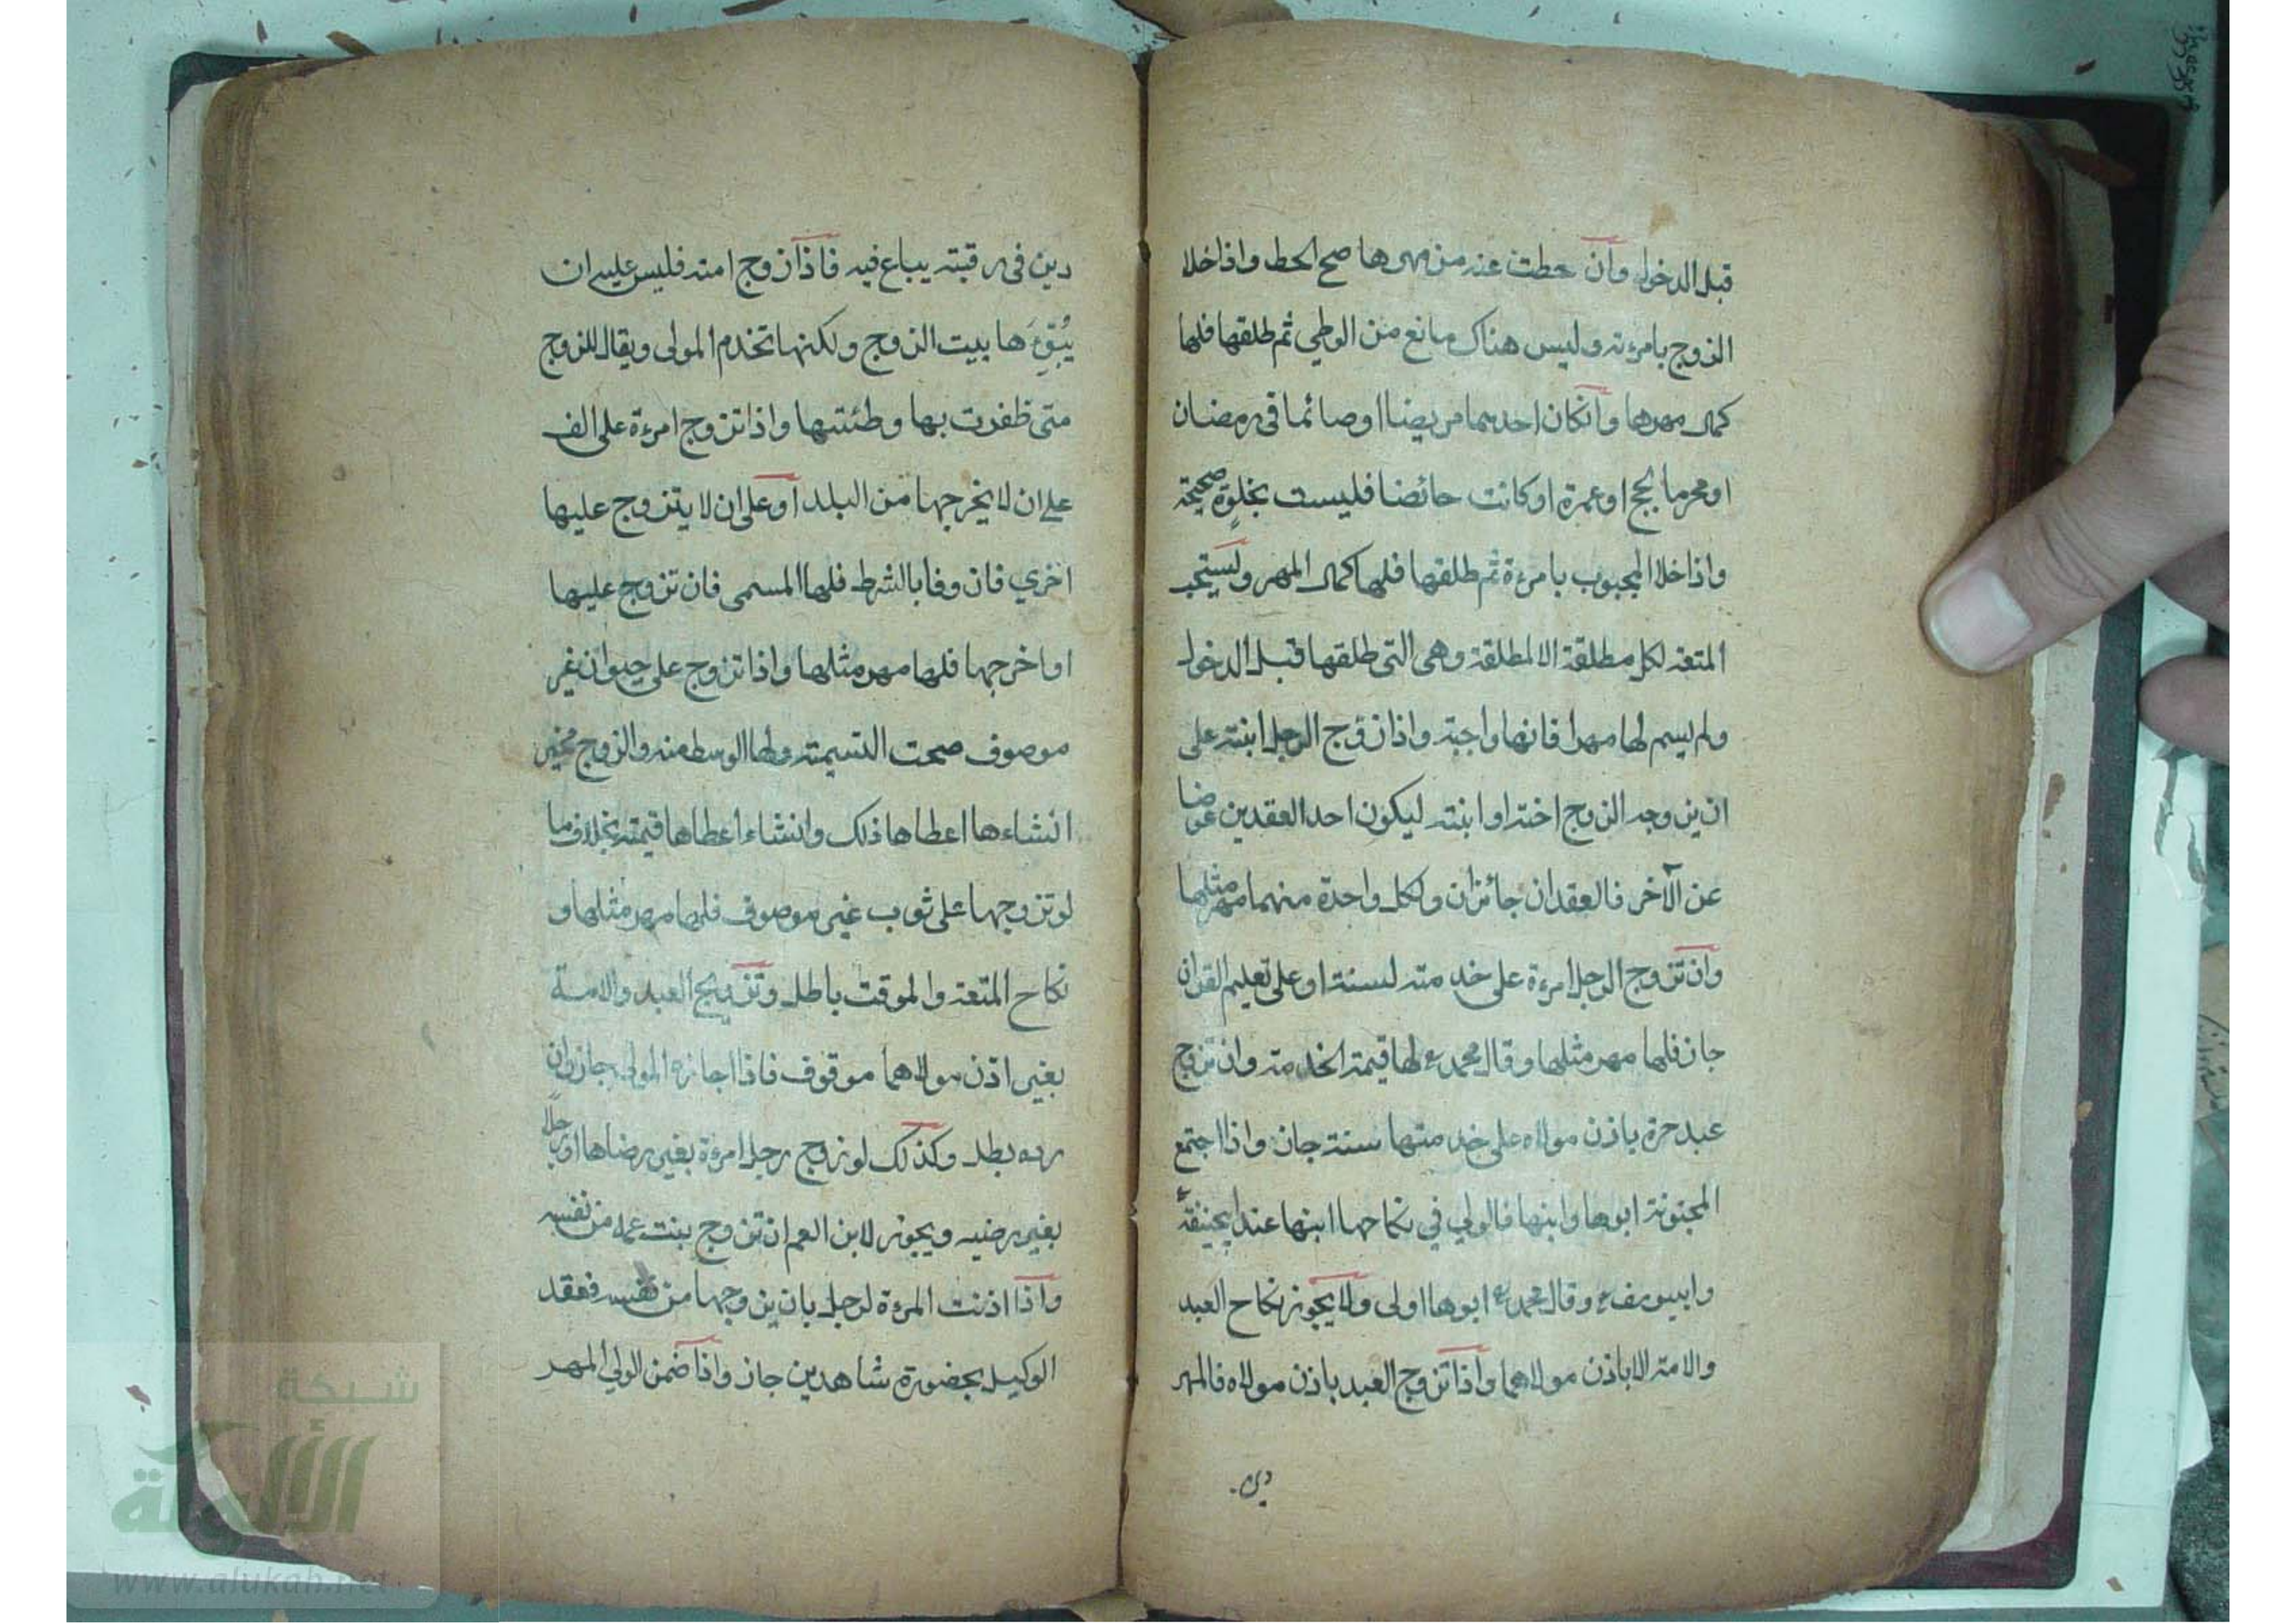 قبل الدخول وان حطت عنه من مهرها صح الحط واذا خلا
الزوج بامرءته وليس هناك مانع من الوطي ثم طلقها فلها
كمال مهرها وانكان احدهما مريضا او صائما في رمضان
او محرما بحج او عمرة او كانت حائضا فليست بخلوة صحيحة
واذا خلا المجبوب بامرءة ثم طلقها فلها كمال المهر ويستحب
المتعة لكل مطلقة الا لمطلقة وهى التى طلقها قبل الدخول
ولم يسم لها مهرا فانها واجبة واذا زوج الرجل ابنته على
ان يزوجه الزوج اخته او ابنته ليكون احد العقدين عوضا
عن الآخر فالعقدان جائزان ولكل واحدة منهما مهر مثلها
وان تزوج الرجل امرءة على خدمته لسنة او على تعليم القران
جاز فلها مهر مثلها وقال محمد ع لها قيمة الخدمته وان تزوج
عبد حرة باذن مولاه على خدمتها سنة جاز واذا اجتمع
المجنونة ابوها وابنها فالولي في نكاحها ابنها عند ابيحنيفة
وابيوسف ع وقال محمد ع ابوها اولى ولا يجوز نكاح العبد
والامة الا باذن مولاهما واذا تزوج العبد باذن مولاه فالمهر
دين
دين فى رقبته يباع فيه فاذا زوج امته فليس عليه ان
يُبَوِّءَها بيت الزوج ولكنها تخدم المولى ويقال للزوج
متى ظفرت بها وطئتها واذا تزوج امرءة على الف
على ان لا يخرجها من البلد او على ان لا يتزوج عليها
اخري فان وفا بالشرط فلها المسمى فان تزوج عليها
او اخرجها فلها مهر مثلها واذا تزوج على حيوان غير
موصوف صحت التسيمته ولها الوسط منه والزوج مخير
انشاءها اعطاها ذلك وانشاء اعطاها قيمته بخلاف ما
لو تزوجها على ثوب غير موصوف فلها مهر مثلها و
نكاح المتعة والموقت باطل وتزويج العبد والامة
بغير اذن مولاهما موقوف فاذا اجازه المولى جاز وان
رده بطل وكذلك لو زوج رجل امرءة بغير رضاها او رجلا
بغير رضيه ويجوز لابن العم ان تزوج بنت عمه من نفسه
واذا اذنت المرءة لرجل بان يزوجها من نفسه فعقد
الوكيل بحضورة شاهدين جاز واذا ضمن الولي المهر
شبكة
الألوكة
www.alukah.net